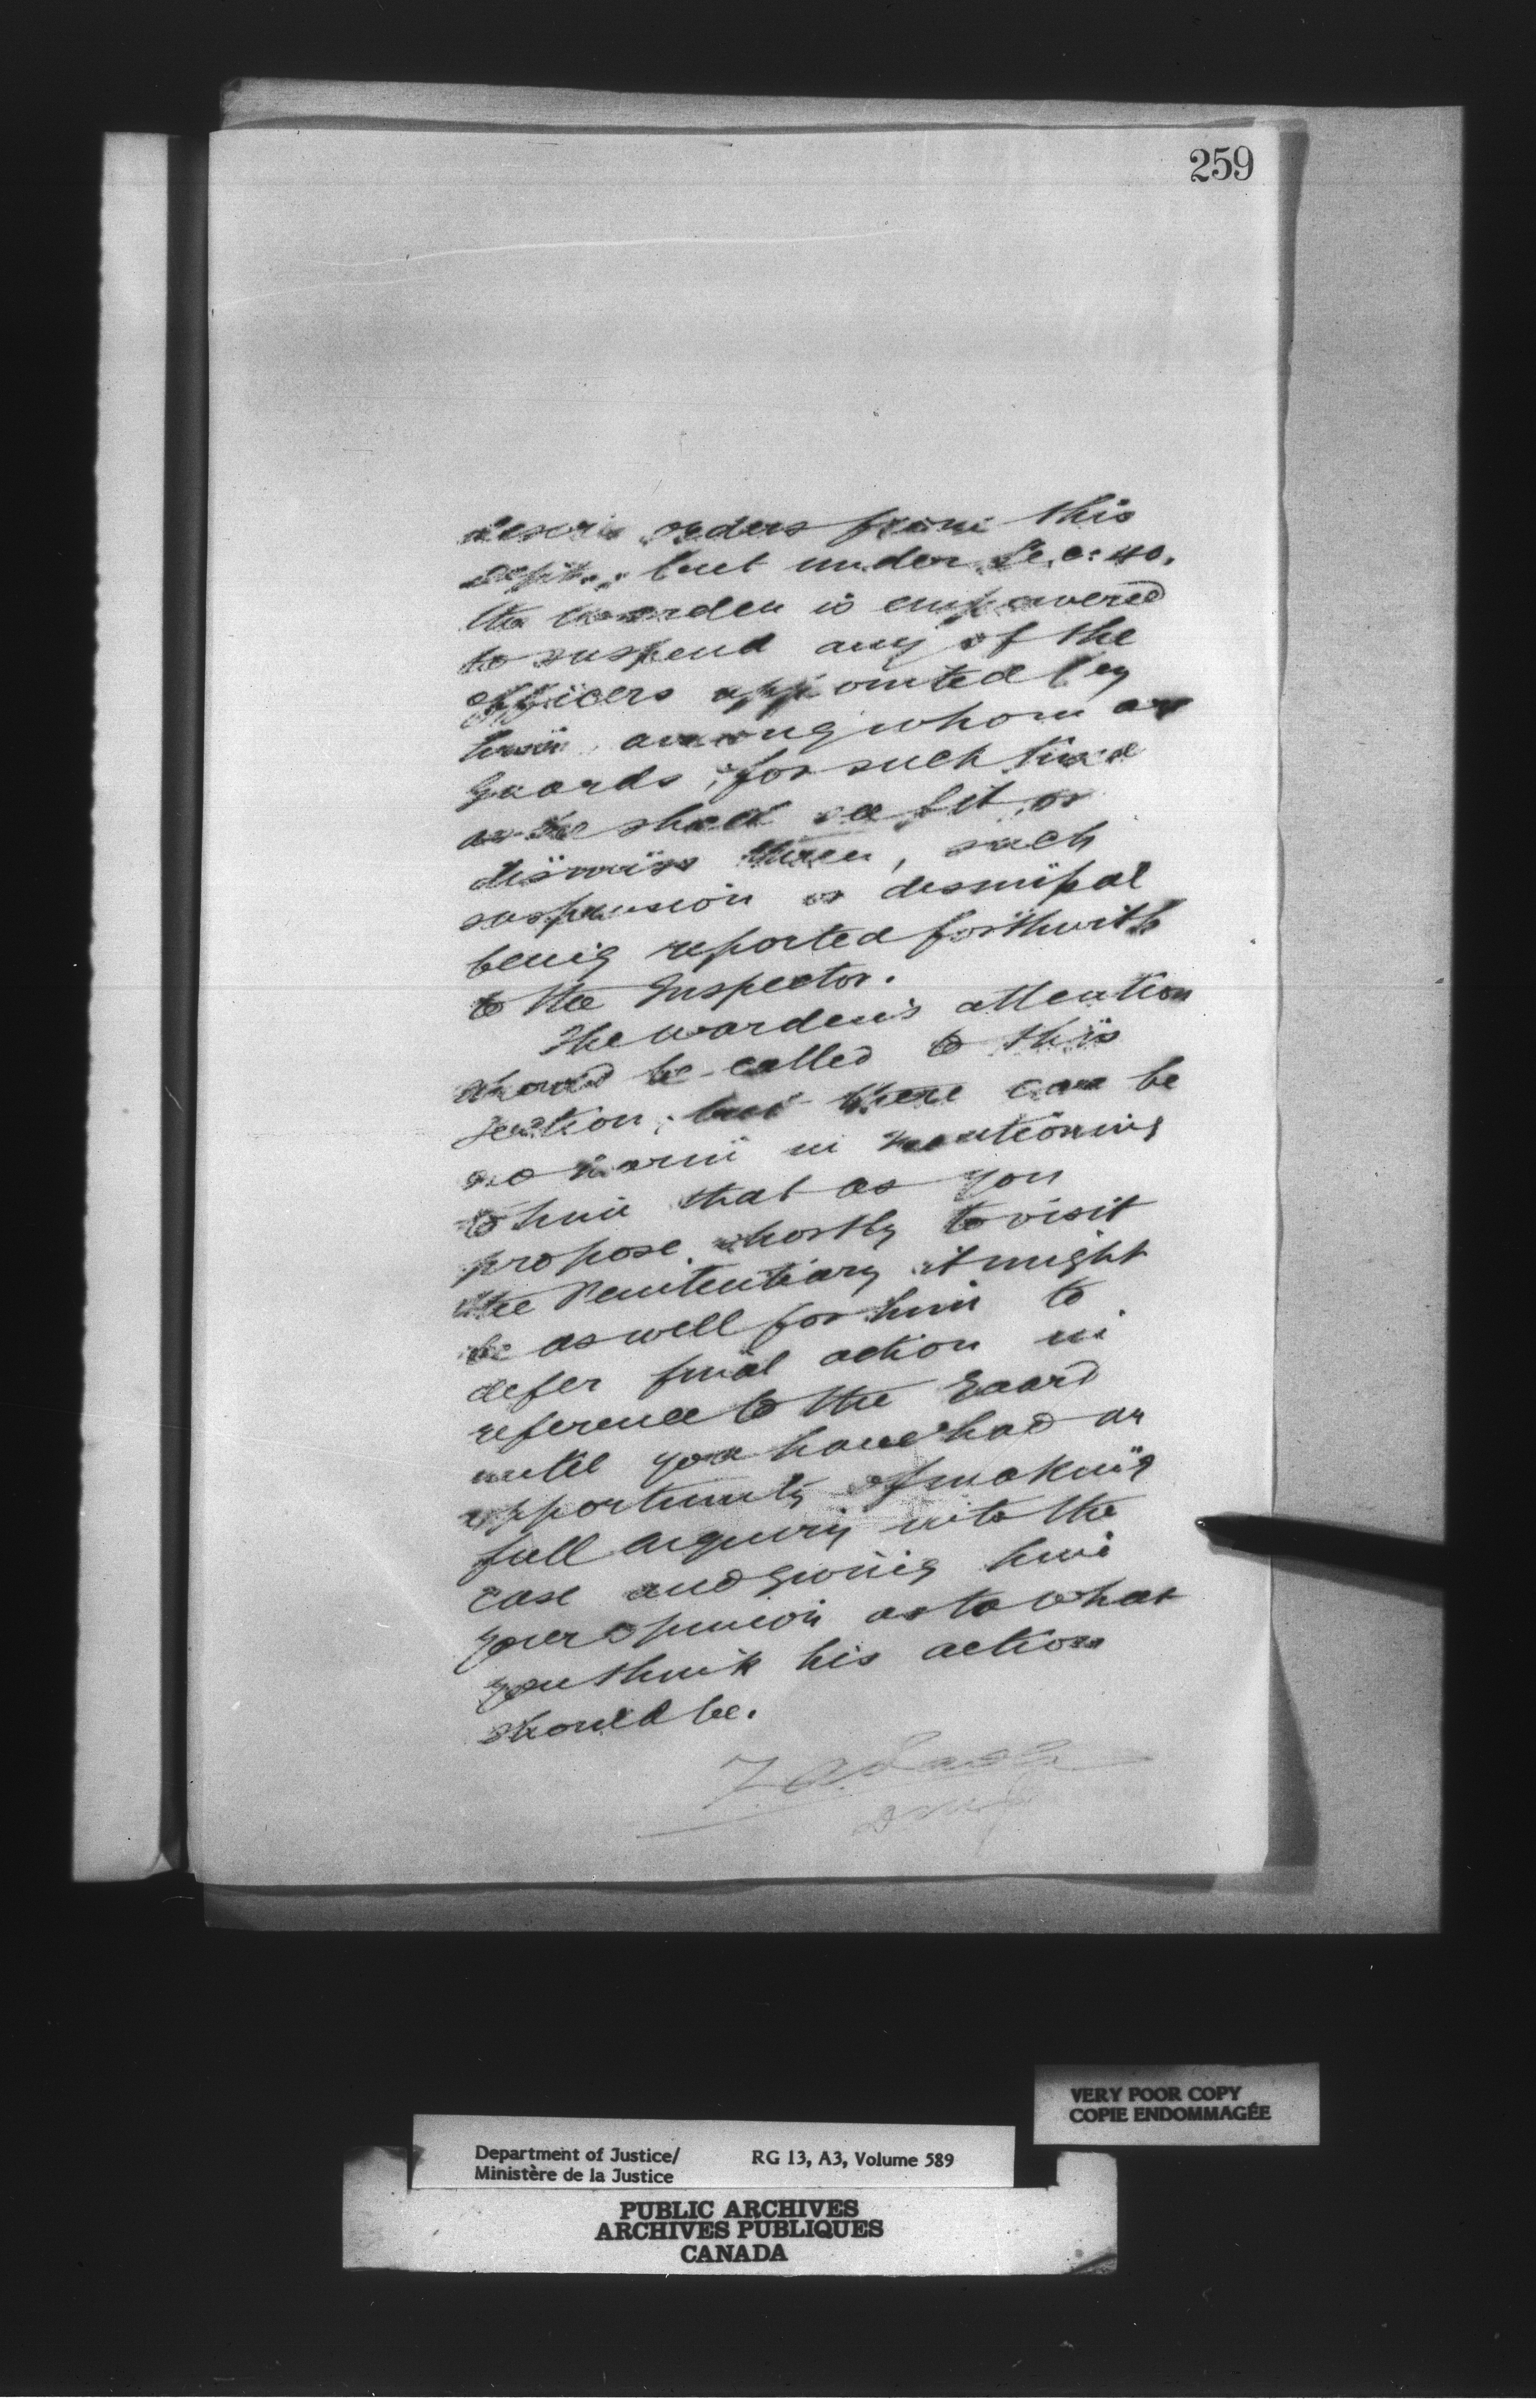 259
desire orders from this
Dept.; but under Sec: 40.
the Warden is empowered
to suspend any of the
officers appointed by
him among whom are
Guards, for such time
as he shall see fit, or
dismiss them, such
suspension or dismissal
being reported forthwith
to the Inspector.
The Warden's attention
should be called to this
section, but there can be
no harm in mentioning
to him that as you
propose shortly to visit
the Penitentiary it might
be as well for him to
defer final action in
reference to the Guard
until you have had an
opportunity of making
full enquiry into the
case and giving him
your opinion as to what
you think his action
should be.
VERY POOR COPY
COPIE ENDOMMAGÉE
Department of Justice/ RG 13, A3, Volume 589
Ministère de la Justice
PUBLIC ARCHIVES
ARCHIVES PUBLIQUES
CANADA